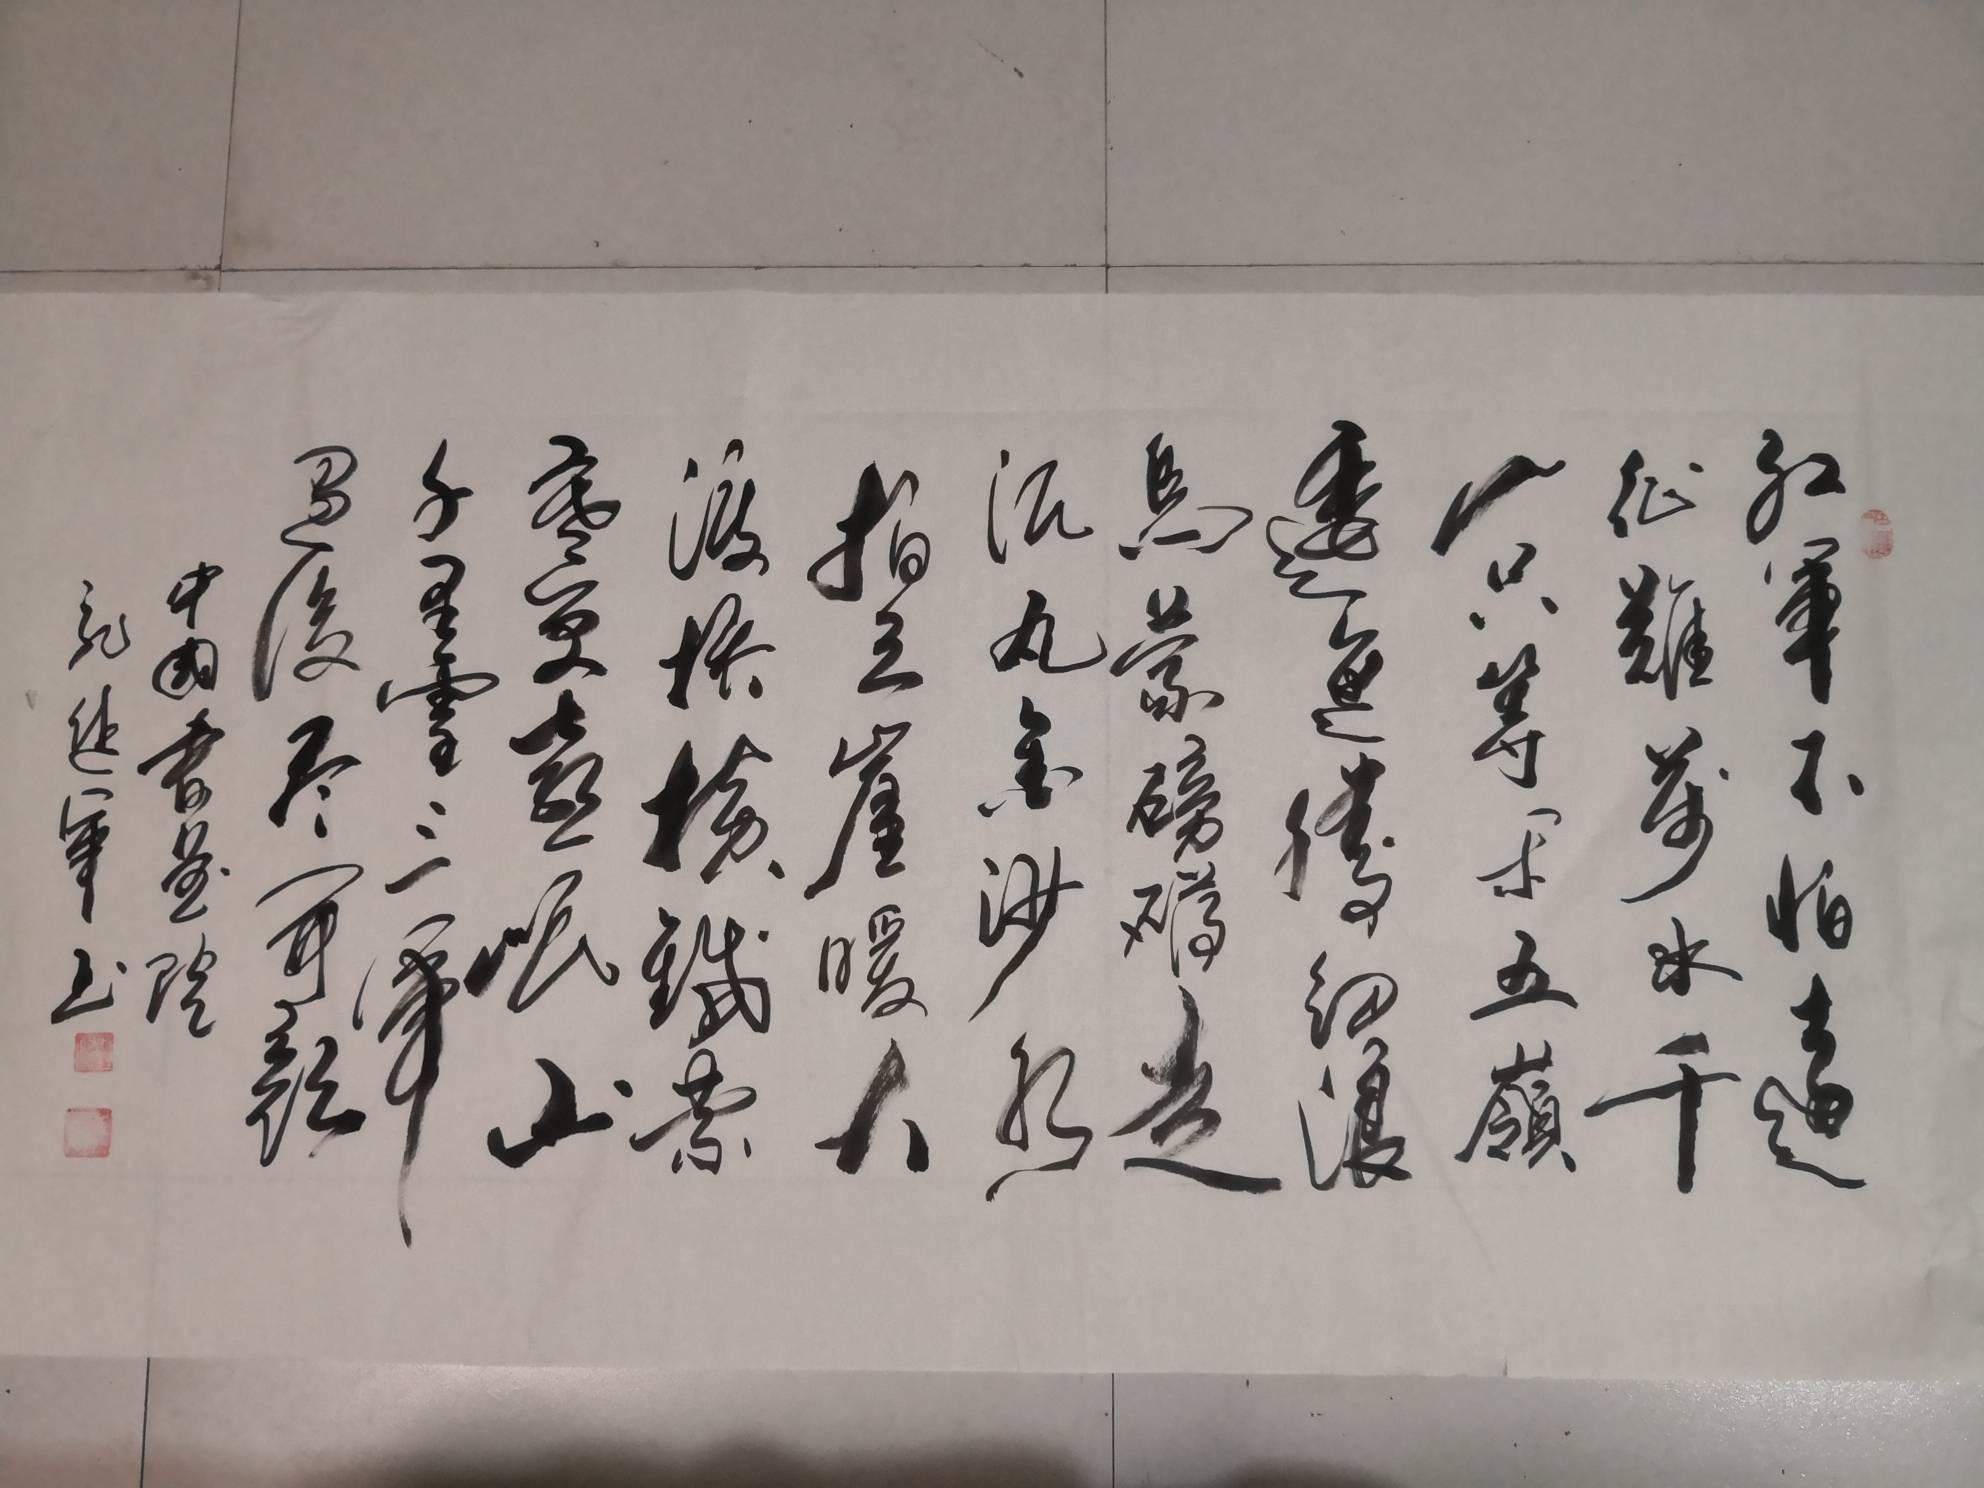 红軍不怕遠
征難萬水千
山只等闲五嶺
逶迤騰細浪
烏蒙磅礴走
泥丸金沙水
拍云崖暖大
渡橋橫鐵索
寒更喜岷山
千里雪三軍
過後尽開顏
中國書画院
軍书